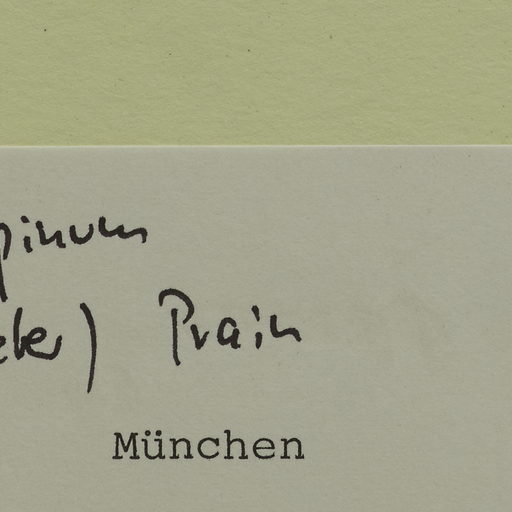 pinum
eler) Prain
München